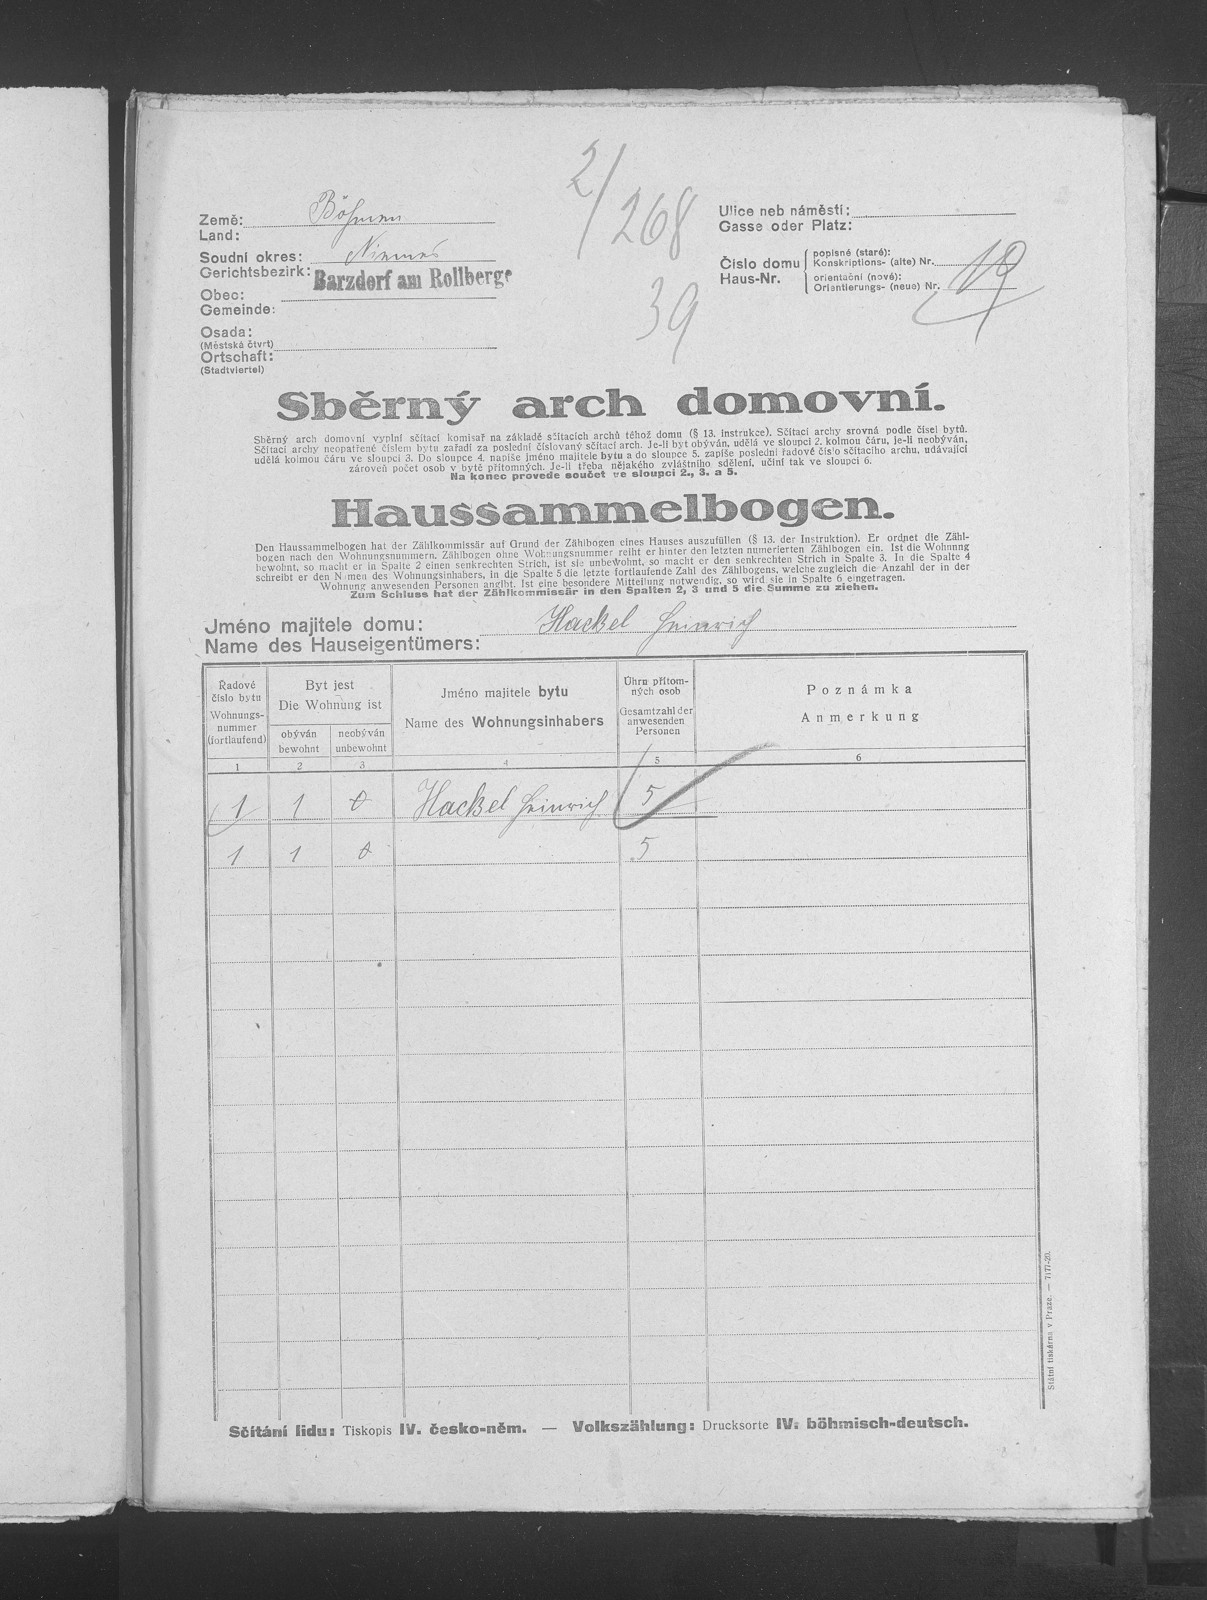 2/268
39
Země: Böhmen
Land:
Soudní okres: Niemes
Gerichtsbezirk:
Barzdorf am Rollberge
Obec:
Gemeinde:
Osada:
(Městská čtvrt)
Ortschaft:
(Stadtviertel)
Ulice neb náměstí:
Gasse oder Platz:
Číslo domu
Haus-Nr.
popisné (staré):
Konskriptions- (alte) Nr.
orientační (nové):
Orientierungs- (neue) Nr.
Sběrný arch domovní.
Sběrný arch domovní vyplní sčítací komisař na základě sčítacích archů téhož domu (§ 13. instrukce). Sčítací archy srovná podle čísel bytů.
Sčítací archy neopatřené číslem bytu zařadí za poslední číslovaný sčítací arch. Je-li byt obýván, udělá ve sloupci 2. kolmou čáru, je-li neobýván,
udělá kolmou čáru ve sloupci 3. Do sloupce 4. napíše jméno majitele bytu a do sloupce 5. zapíše poslední řadové číslo sčítacího archu, udávající
zároveň počet osob v bytě přítomných. Je-li třeba nějakého zvláštního sdělení, učiní tak ve sloupci 6.
Na konec provede součet ve sloupci 2., 3. a 5.
Haussammelbogen.
Den Haussammelbogen hat der Zählkommissär auf Grund der Zählbogen eines Hauses auszufüllen (§ 13. der Instruktion). Er ordnet die Zähl-
bogen nach den Wohnungsnummern. Zählbogen ohne Wohnungsnummer reiht er hinter den letzten numerierten Zählbogen ein. Ist die Wohnung
bewohnt, so macht er in Spalte 2 einen senkrechten Strich, ist sie unbewohnt, so macht er den senkrechten Strich in Spalte 3. In die Spalte 4
schreibt er den Namen des Wohnungsinhabers, in die Spalte 5 die letzte fortlaufende Zahl des Zählbogens, welche zugleich die Anzahl der in der
Wohnung anwesenden Personen angibt. Ist eine besondere Mitteilung notwendig, so wird sie in Spalte 6 eingetragen.
Zum Schluss hat der Zählkommissär in den Spalten 2, 3 und 5 die Summe zu ziehen.
Jméno majitele domu: Hackel Heinrich
Name des Hauseigentümers:
Řadové
číslo bytu
Wohnungs-
nummer
(fortlaufend)
Byt jest
Die Wohnung ist
obýván
bewohnt
neobýván
unbewohnt
Jméno majitele bytu
Name des Wohnungsinhabers
Úhrn přítom-
ných osob
Gesamtzahl der
anwesenden
Personen
Poznámka
Anmerkung
1 2 3 4 5 6
1 1 0 Hackel Heinrich 5
1 1 0 5
Státní tiskárna v Praze. — 7177-20.
Sčítání lidu: Tiskopis IV. česko-něm. — Volkszählung: Drucksorte IV. böhmisch-deutsch.